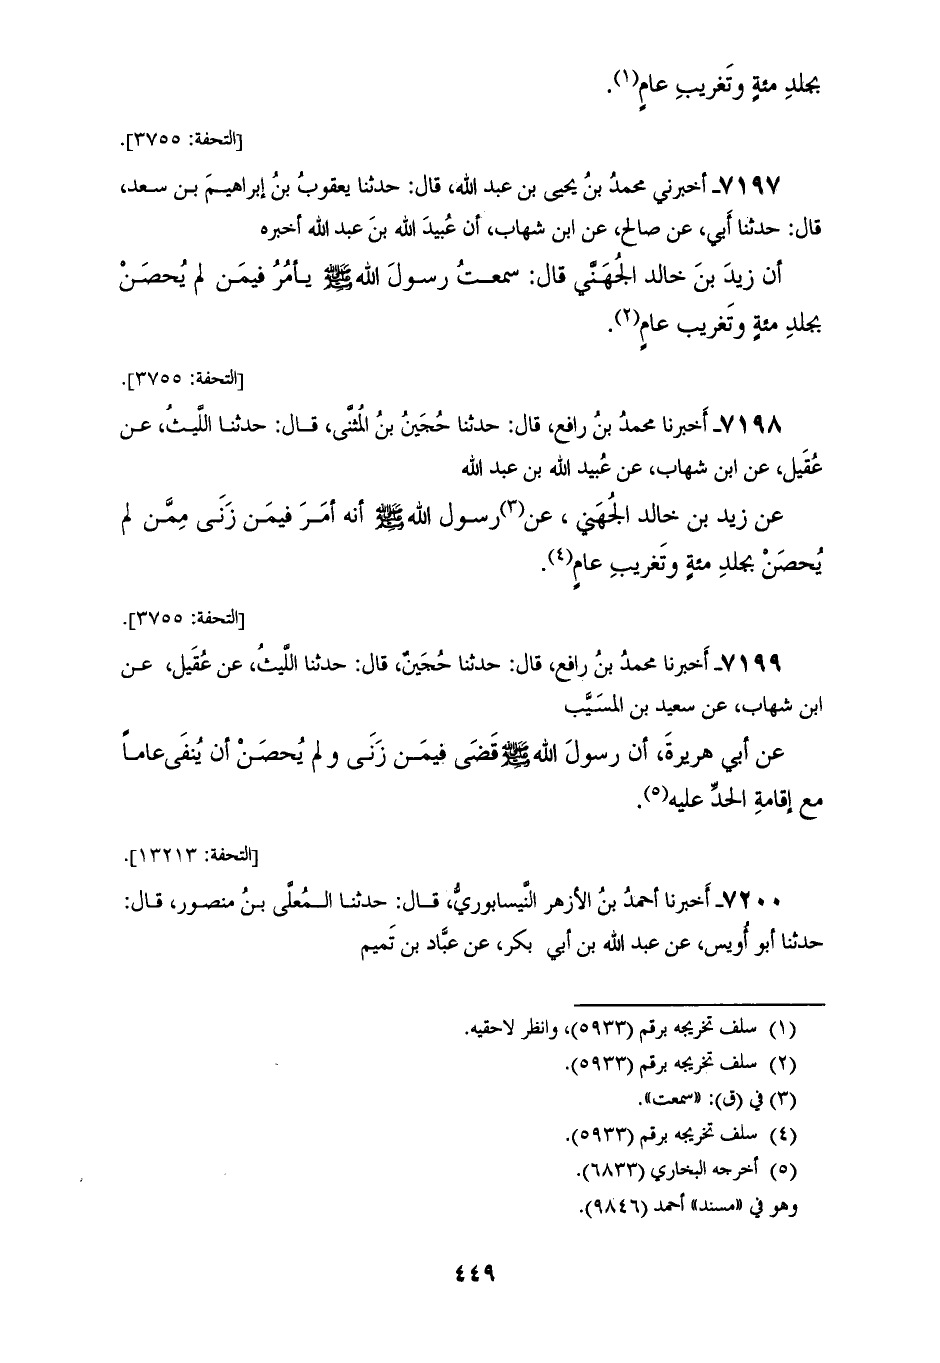 بجلدِ مئةٍ وتَغريبِ عامٍ(١).
[التحفة: ٣٧٥٥].
٧١٩٧ـ أخبرني محمدُ بنُ يحيى بن عبد الله، قال: حدثنا يعقوبُ بنُ إبراهيمَ بن سعد،
قال: حدثنا أَبي، عن صالح، عن ابن شهاب، أن عُبيدَ الله بنَ عبد الله أخبره
أن زيدَ بنَ خالد الجُهَنَّي قال: سمعتُ رسولَ الله ﷺ يأمُرُ فيمَن لم يُحصَنْ
بجلدِ مئةٍ وتَغريب عامٍ(٢).
[التحفة: ٣٧٥٥].
٧١٩٨ـ أَخبرنا محمدُ بنُ رافع، قال: حدثنا حُجَينُ بنُ المُثنَّى، قال: حدثنا اللَّيثُ، عن
عُقَيل، عن ابن شهاب، عن عُبيد الله بن عبد الله
عن زيد بن خالد الجُهَني ، عن(٣) رسول الله ﷺ أنه أمَرَ فيمَن زَنَى مِمَّن لم
يُحصَنْ بجلدِ مئةٍ وتَغريبِ عامٍ(٤).
[التحفة: ٣٧٥٥].
٧١٩٩ـ أَخبرنا محمدُ بنُ رافع، قال: حدثنا حُجَينٌ، قال: حدثنا اللَّيثُ، عن عُقَيل، عن
ابن شهاب، عن سعيد بن المسَيَّب
عن أبي هريرةَ، أن رسولَ الله ﷺ قَضَى فيمَن زَنَى و لم يُحصَنْ أن يُنفَى عاماً
مع إقامةِ الحدِّ عليه(٥).
[التحفة: ١٣٢١٣].
٧٢٠٠ـ أَخبرنا أحمدُ بنُ الأزهر النَّيسابوريُّ، قال: حدثنا المُعلَّى بنُ منصور، قال:
حدثنا أبو أُويس، عن عبد الله بن أبي بكر، عن عبَّاد بن تَميم
(١) سلف تخريجه برقم (٥٩٣٣)، وانظر لاحقيه.
(٢) سلف تخريجه برقم (٥٩٣٣).
(٣) في (ق): «سمعت».
(٤) سلف تخريجه برقم (٥٩٣٣).
(٥) أخرجه البخاري (٦٨٣٣).
وهو في «مسند» أحمد (٩٨٤٦).
٤٤٩